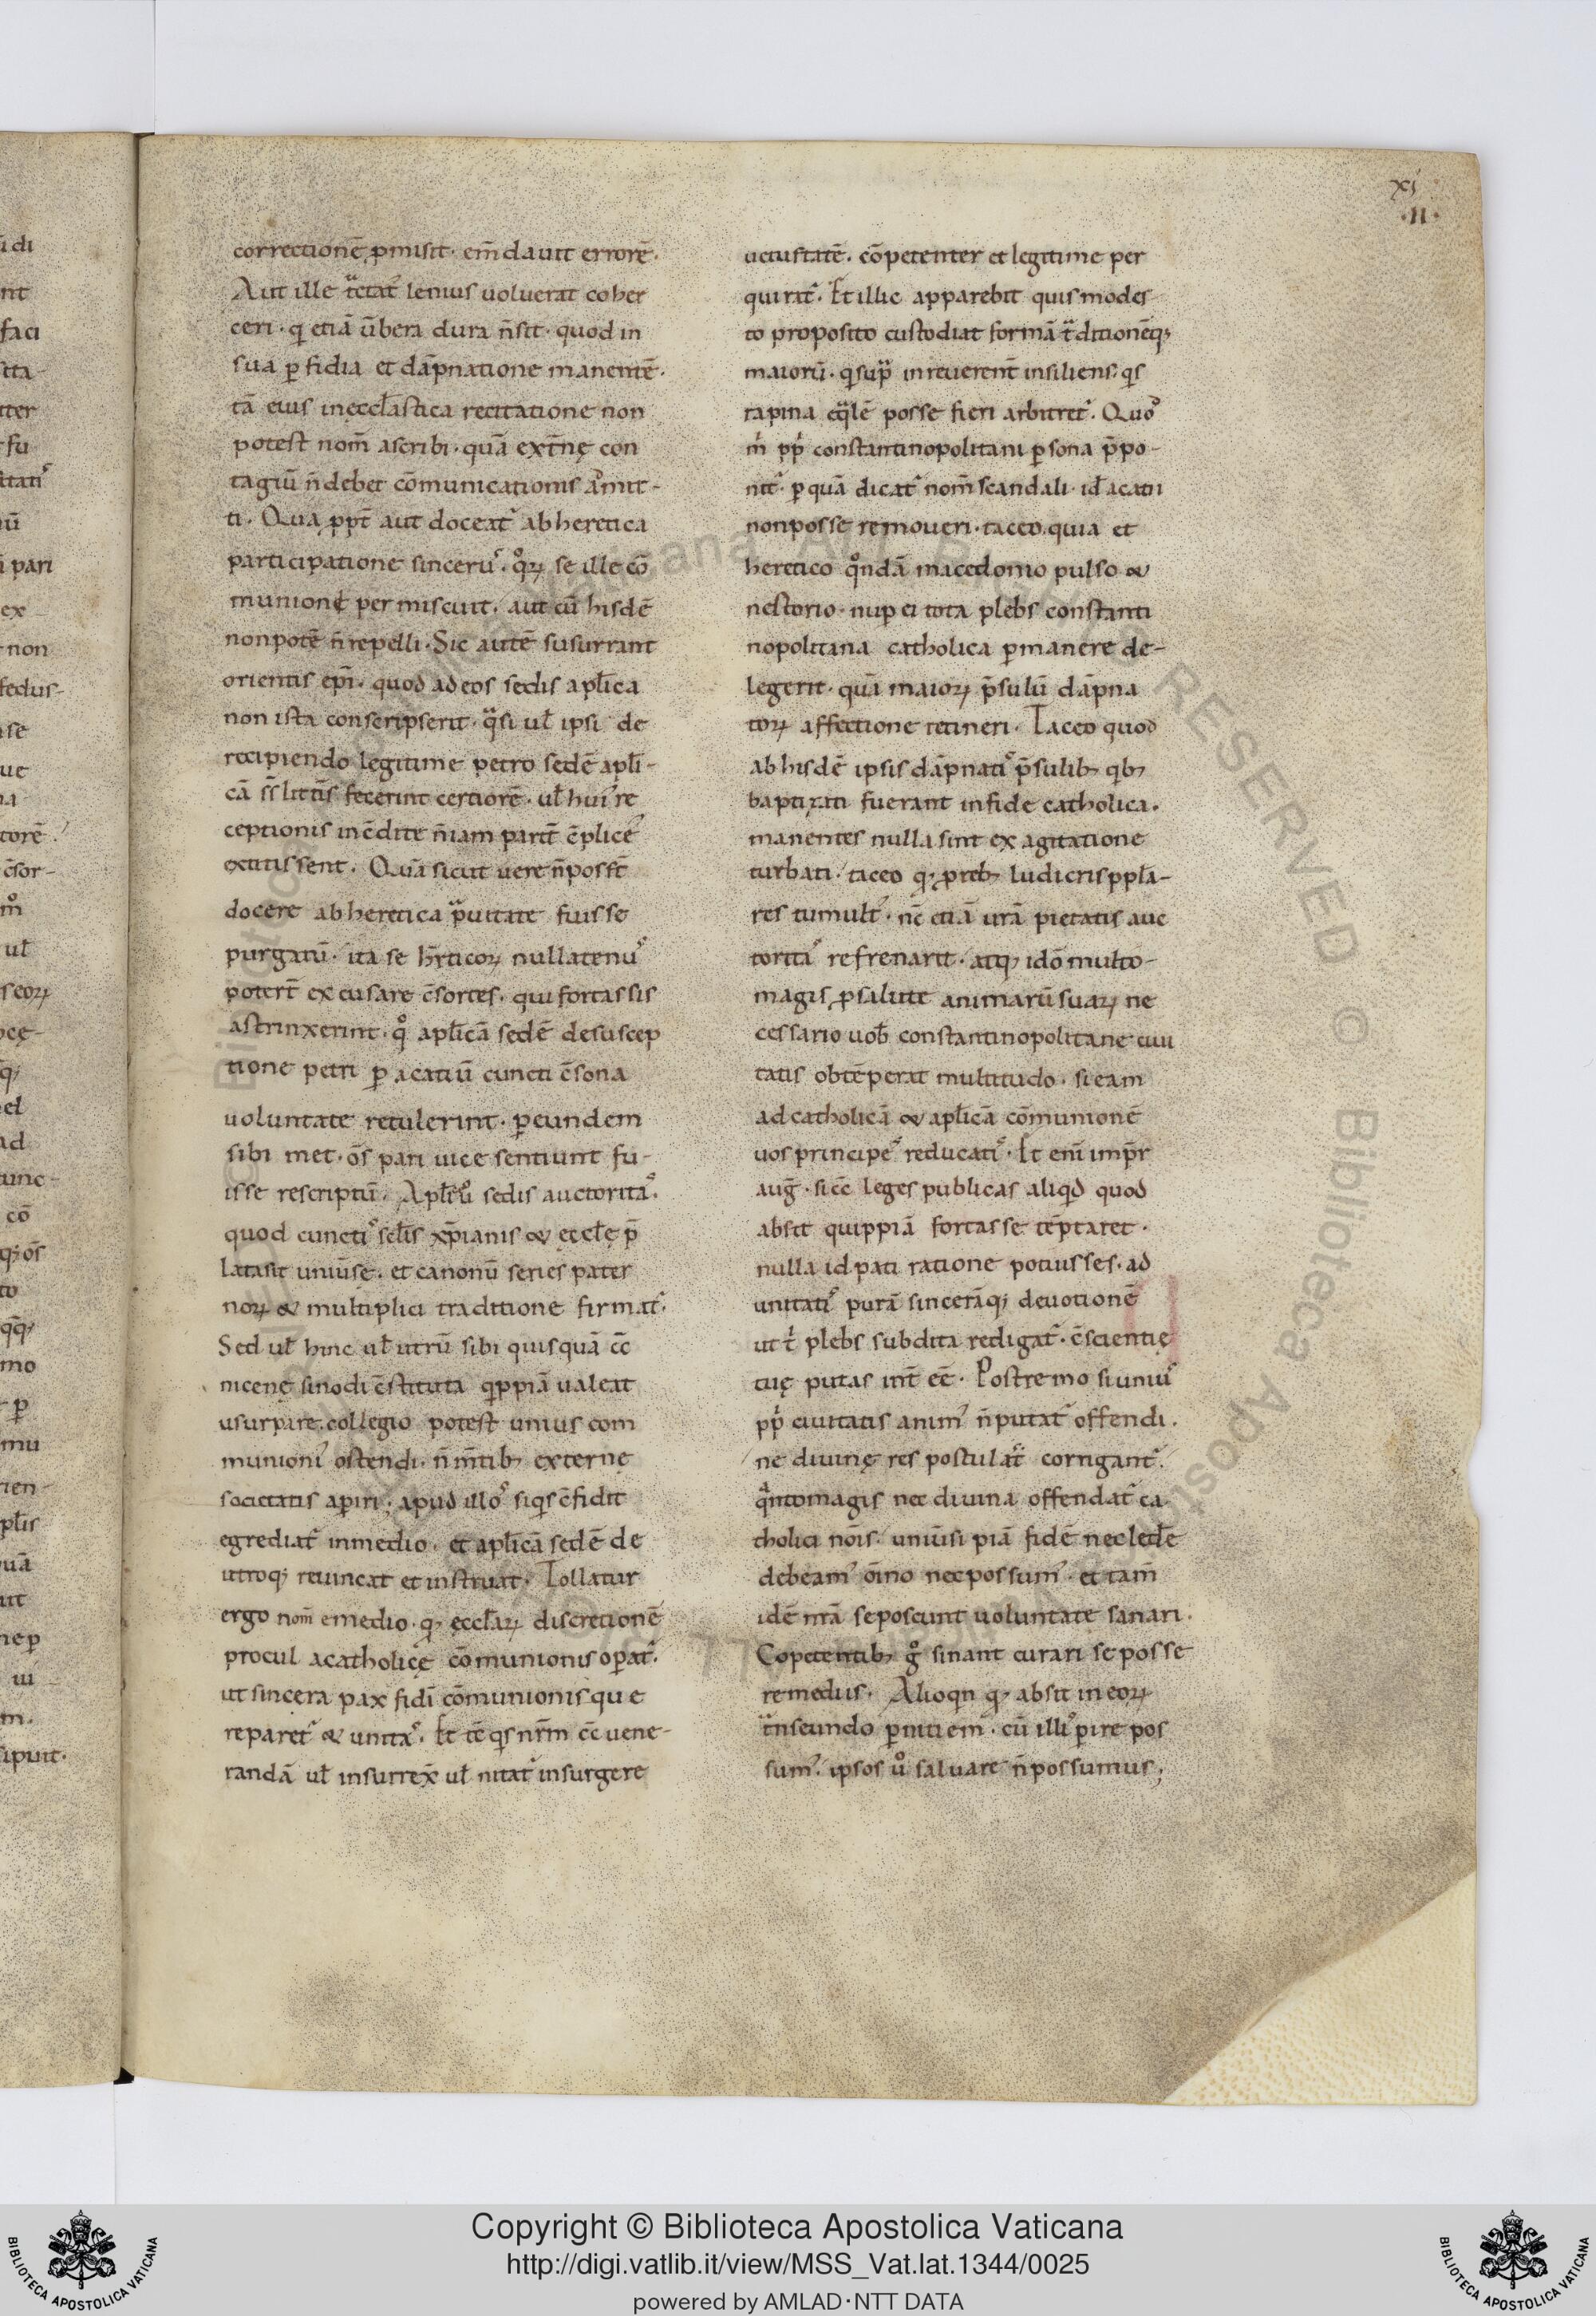 xi
·II·
correctionē ꝓmisit· em̄dauit errorē·
Aut ille tͣctat᷑ lenius uoluerat coher
ceri· q etiā ūbera dura n̄sit· quod in
sua ꝑfidia et dāpnatione manentē·
tā eius inęccl̄astica recitatione non
potest nom̄ ascribi· quā ext̄nę con
tagiū n̄ debet cōmunicationis
ti· Qua ꝓpt̄ aut doceat᷑ ab heretica
participatione se ille cō
munionę permiscuit· aut cū hisdē
nonpotē n̄ repelli· Sic autē susurrant
orientis epī· quod ad eos sedis apl̄ica
non ista conscripserit· qͣsi ul̄ ipsi de
recipiendo legitime petro sedē apl̄i-
cā certiorē· ul̄ hui᷒ re
ceptionis
extitissent· Quā sicut uere n̄possēt
docere ab heretica pͣuitate fuisse
purgatū· ita se hr̄ticoꝝ nullatenu᷒
potert̄ excusare c̄sortes· qui fortassis
astrinxerint· qͦ apl̄icā sedē desuscep
tione petri ꝑ acatiū cuncti c̄sona
uoluntate retulerint· ꝑeundem
sibi met· ōs pari uice sentiunt fu-
isse rescriptū· sedis auctorita᷒·
quod cuncti᷒ scl̄is xp̄ianis & ęccl̄ę p̄
latasit uniūsę· et canonū series pater
noꝝ & multiplici traditione firmat᷑·
Sed ul̄ hinc ul̄ utrū sibi quisquā ēē
nicenę sinodi c̄stituta qͥppiā ualeat
usurpare· collegio potest unius com
munioni᷒ ostendi· n̄ m̄tibꝫ externę
societatis aperiri· apud illo᷒ siqͥs c̄fidit
egrediat᷑ inmedio· et apl̄icā sedē de
utroqꝫ reuincat et instruat· Tollatur
ergo nom̄ emedio· qͥ ęccl̄aꝝ discretionē
procul acatholicę cōmunionis oꝑat᷑·
ut sincera pax fidī cōmunionisque
reparet᷑ & unita᷒· Et tē qͥs nrm̄ ēē uene-
randā ul̄ insurrex̄ ul̄ nitat᷑ insurgere
uetustatē· cōpetenter et legitime per
quirat᷑· Et illic apparebit quis modes
to proposito custodiat formā tͣditionēqꝫ
maioꝝ· qͥsupͣ inreuerent̄ insiliens· qͥs
rapina eqͣlē posse fieri arbitret᷑· Quō
m̄ pp̄ constantinopolitani ꝑsona p̄po-
nit᷑· ꝑquā dicat᷑ nom̄ scandali· id̄ acatii
nonposse remoueri· taceo quia et
heretico qͦndā macedonio pulso &
nestorio· nuꝑ ei tota plebs constanti
nopolitana catholica ꝑmanere de-
legerit· quā maioꝝ p̄sulū dāpna
toꝝ affectione retineri· Taceo quod
abhisdē ipsis dāpnati᷒ p̄sulibꝫ qͥbꝫ
baptizati fuerant infide catholica·
manentes nulla sint exagitatione
turbati· taceo qͥ ꝓrebꝫ ludicris ppl̄a-
res tumult᷒· nc̄ etiā urā pietatis auc
torita᷒ refrenarit· atqꝫ idō multo-
magis ꝓsalute animarū suaꝝ ne
cessario uob̄ constantinopolitane ciui
tatis obtēperat multitudo· si eam
ad catholicā & apl̄icā cōmunionē
uos principe᷒ reducati᷒· Et enī imp̄r
aug̅· si cc̄ leges publicas aliqͥd quod
absit quippiā fortasse tēptaret·
nulla id pati ratione potiusses· ad
unitati᷒ purā sincerāqꝫ deuotionē
ut tͥ plebs subdita redigat᷑· c̄scientię
tuę putas int̄ ēē· Postremo si uniu᷒
pp̄ ciuitatis anim᷒ n̄putat᷑ offendi·
ne diuinę res postulat᷑ corrigant᷑·
qͣntomagis nec diuina offendat᷑ ca
tholici nōis· uniūsi piā fidē nec ledēe
debeam᷒ oīno nec possum᷒· et tam̄
idē nrā se poscunt uoluntate sanari·
Copetentibꝫ gͦ sinant curari se posse
remediis· Alioqͥn qͥ absit in eoꝝ
tͣnseundo ꝑnitiem· cū illi᷒ ꝑire pos
sum᷒· ipsos uͦ saluare n̄possumus;
Copyright © Biblioteca Apostolica Vaticana
http://digi.vatlib.it/view/MSS_Vat.lat.1344/0025
powered by AMLAD·NTT DATA
BIBLIOTECA APOSTOLICA VATICANA
BIBLIOTECA APOSTOLICA VATICANA